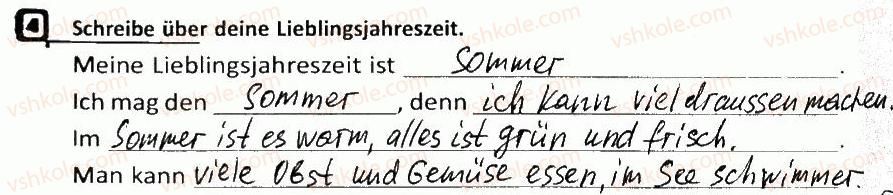 4 Schreibe über deine Lieblingsjahreszeit.
Meine Lieblingsjahreszeit ist Sommer.
Ich mag den Sommer, denn ich kann viel draussen machen.
Im Sommer ist es warm, alles ist grün und frisch.
Man kann viele Obst und Gemüse essen, im See schwimmer.